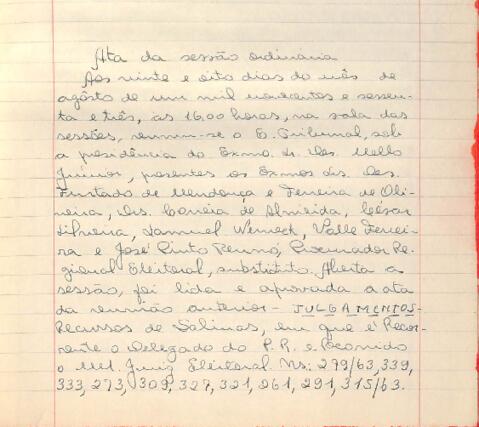 Ata da sessão ordinária
Aos vinte e oito dias do mês de
agôsto de um mil novecentos e sessen-
ta e três, às 16.00 horas, na sala das
sessões, reuniu-se o E. Tribunal, sob
a presidência do Exmo. Sr. Des. Mello
Junior, presentes os Exmos Srs. Des.
Furtado de Mendonça e Ferreira de Oli-
veira, Drs. Correia de Almeida, César
Silveira, Samuel Werneck, Valle Ferrei-
ra e José Pinto Renno, Procurador Re-
gional Eleitoral, substituto. Aberta a
sessão, foi lida e aprovada a ata
da reunião anterior - JULGAMENTOS -
Recursos de Salinas, em que é Recor-
rente o Delegado do P.R. e Recorrido
o MM. Juiz Eleitoral. Ns: 279/63, 339,
333, 273, 309, 327, 321, 261, 291, 315/63.